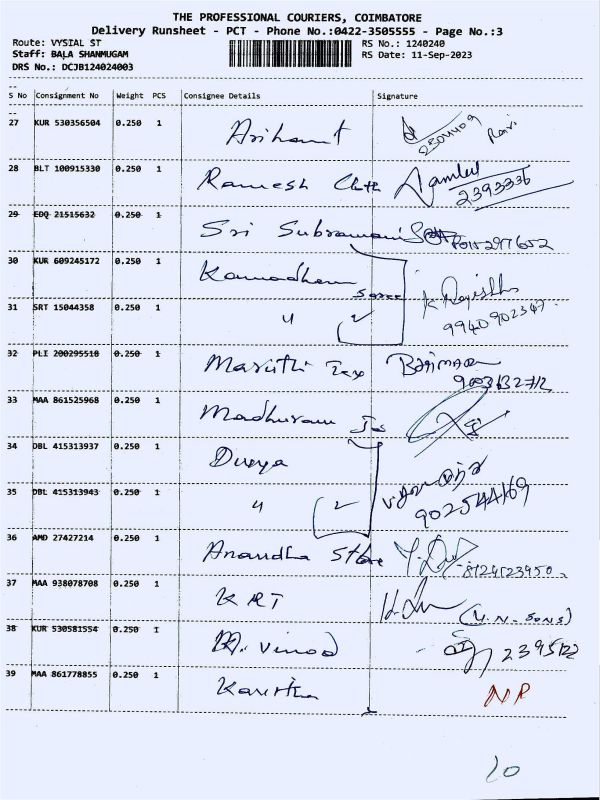 THE PROFESSIONAL COURIERS, COIMBATORE
Delivery Runsheet - PCT - Phone No.:0422-3505555 - Page No.:3
Route: VYSIAL ST
RS No.: 1240240
Staff: BALA SHANMUGAM
RS Date: 11-Sep-2023
DRS No.: DCJB124024003
S No Consignment No Weight PCS Consignee Details Signature
27 KUR 530356504 0.250 1 Arihant Ravi
28 BLT 100915330 0.250 1 Ramesh Cloth 2393336
29 EDQ 21515632 0.250 1 Sri Subramani
30 KUR 609245172 0.250 1 Saree
31 SRT 15044358 0.250 1 " 2 9940902347
32 PLI 200295510 0.250 1 Maruthi Tex
33 MAA 861525968 0.250 1 Madhuram
34 DBL 415313937 0.250 1 Durga
35 DBL 415313943 0.250 1 " 2 902544169
36 AMD 27427214 0.250 1 Anandha Store 8124523950
37 MAA 938078708 0.250 1 KRT
38 KUR 530581554 0.250 1 M. Vinod 2395122
39 MAA 861778855 0.250 1 Kavitha NR
10